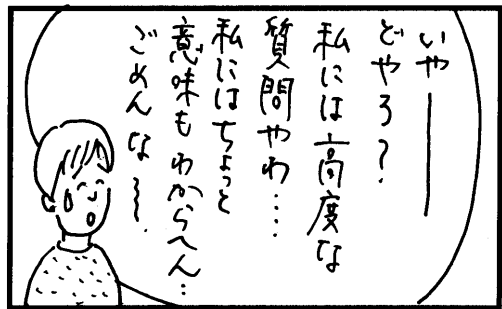 いやー
どやろ？
私には高度な
質問やわ‥‥
私にはちょっと
意味もわからへん…
ごめんな〜〜.